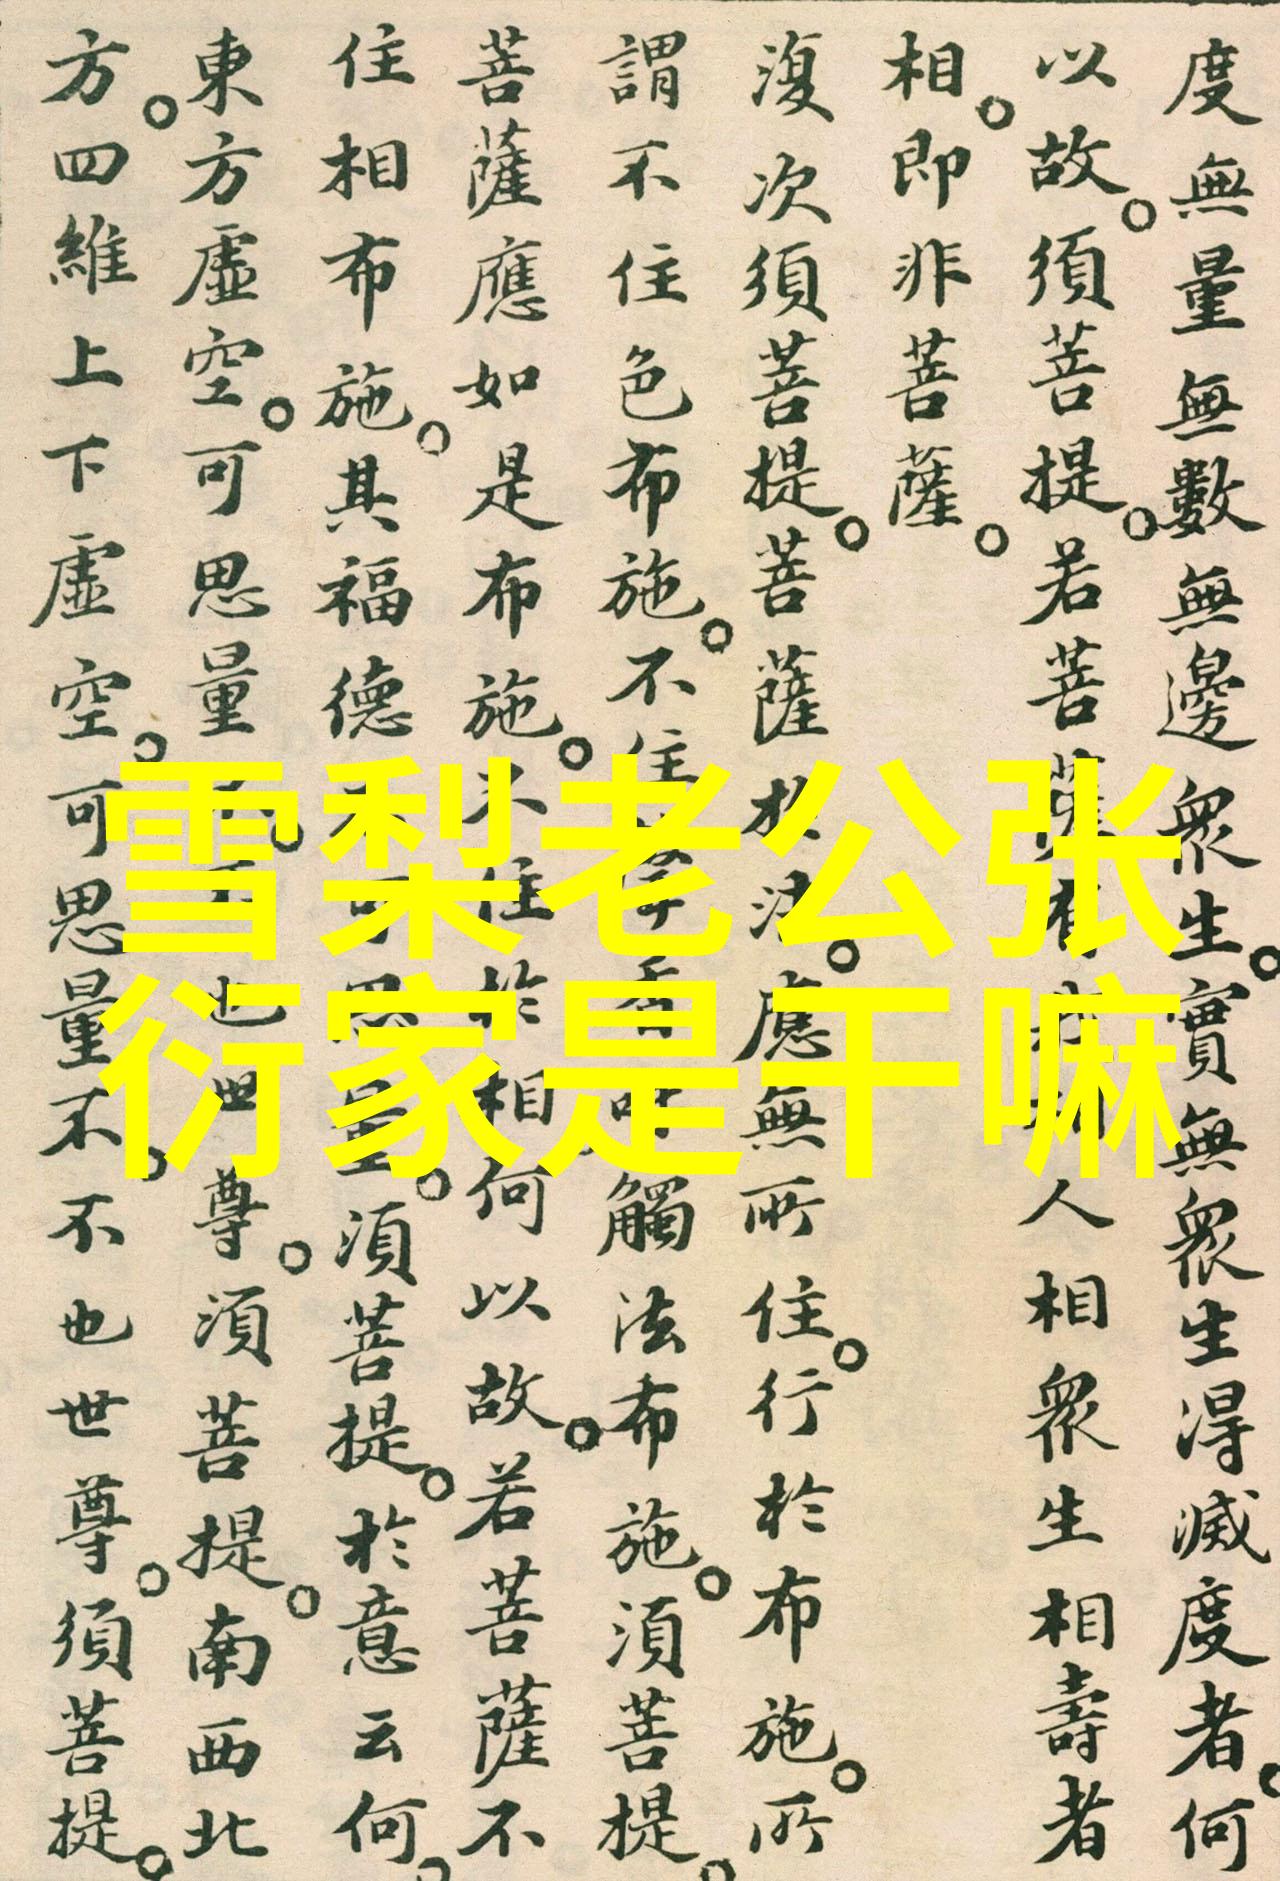 雪梨老公张
衍家是干嘛
度無量無數無邊衆生。實無衆生得滅度者。何
以故。須菩提。若菩薩有我相人相衆生相壽者
相。即非菩薩。
復次須菩提。菩薩於法。應無所住。行於布施。所
謂不住色布施。不住聲香味觸法布施。須菩提。
菩薩應如是布施。不住於相何以故。若菩薩不
住相布施。其福德不可思量。須菩提。於意云何。
東方虛空。可思量不。不也世尊。須菩提。南西北
方。四維上下虛空。可思量不。不也世尊。須菩提。